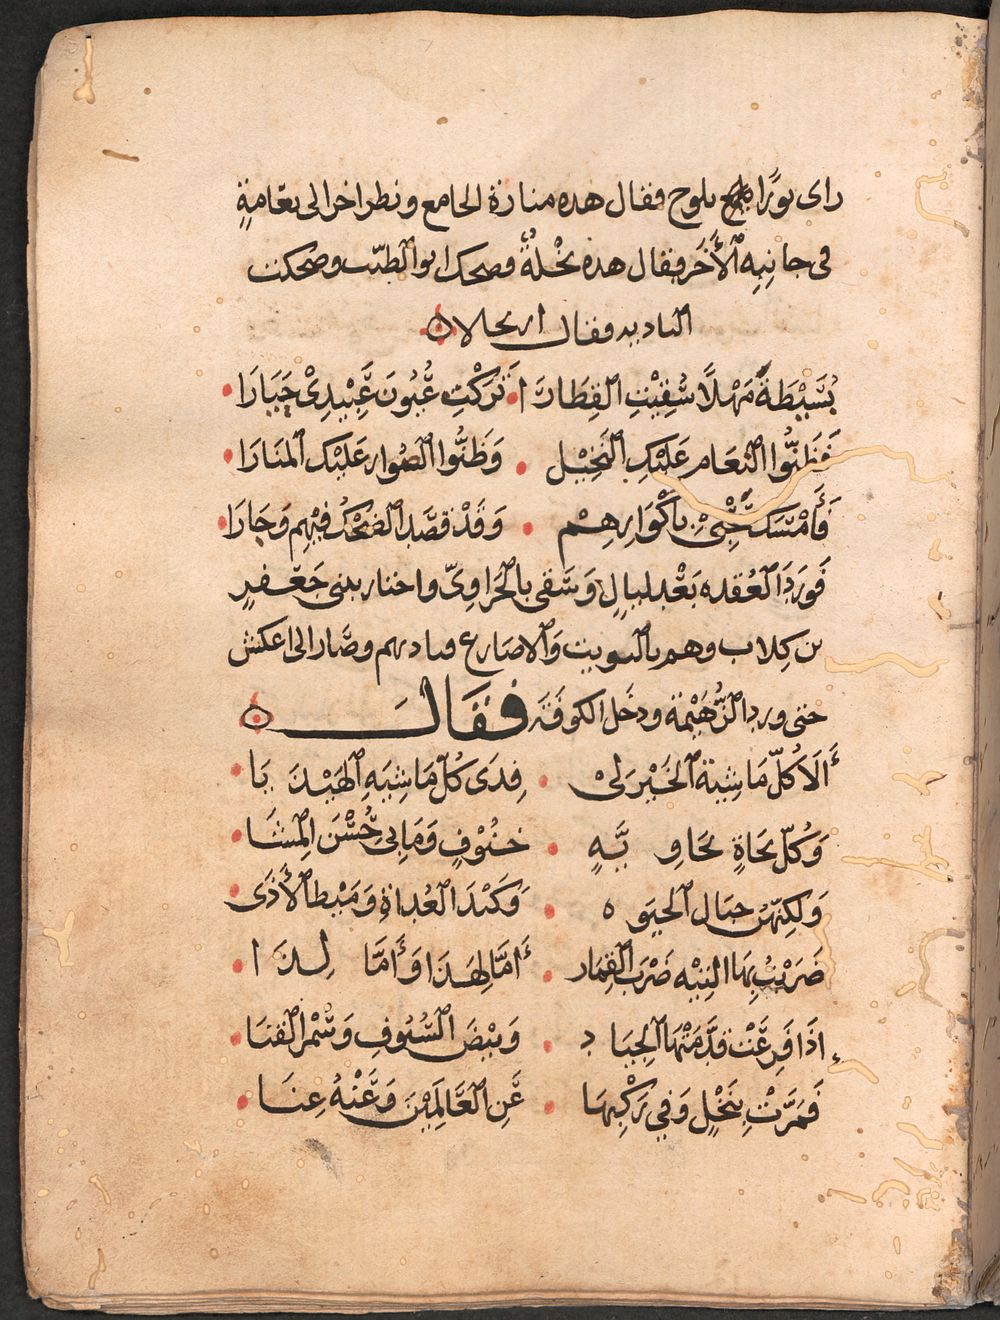 راى ثورًا يلوح فقال هذه منارة الجامع ونظر اخر الى نعامةٍ
في جانبِه الأخَر فقال هذه نخْلةٌ فضحك ابو الطيّب وضحكت
البادية وفقال ارتجالا
بُسَيْطَةُ مَهْلًا سُقِيْتِ القِطَارَا تَرَكْتِ عُيُونَ عَبِيْدِيْ حَيَارَا
فَظَنُّوا النَّعَام عَلَيْكِ النَّخِيْل وَظَنُّوا الصُوار عَلَيْك المَنَارَا
فَأَمْسَكَ صَحْبِيْ بِأَكْوَارِهِمْ وَقَدْ قصَّد الضحْكُ فيْهِم وَجَارَا
فَورَدَ العُقدة بَعْد ليالٍ وَسَقى بالجَراوِيّ واختار ببني جَعْفرٍ
بن كِلاب وهم بالبويت وَالاضارع فبادبهم وصَّار الى اعكش
حتى ورد الرُّهَيْمَة ودخل الكوفَة فقال
أَلَا كُلّ مَاشيَة الخَيْزَلىْ فِدَى كُلّ مَاشِيَهِ الهَيْذَبَا
وَكُلّ نجَاةٍ بجَاوِيَّهٍ خنُوْفٍ وَمَا بِي حُسْنَ المِشَا
وَلكِنّهُن حبَال الحيَوه وَكَيْدَ العُداةِ وَمَيْط الأذَى
ضَرَبْتُ بِهَا التِيْه ضَرْبَ القِمَار أمَّا لِهَذَا وَأَمَّا لِذَا
اذَا فَزِعَتْ قدَّمَتْهَا الجِيَاد وَبيْضَ السُّيُوفِ وَسُمْر القنَا
فَمَرَّتْ بِنَخْلٍ وَفي رَكْبِهَا عَنِ العَالَمِيْنَ وَعَنْهُ غِنَا